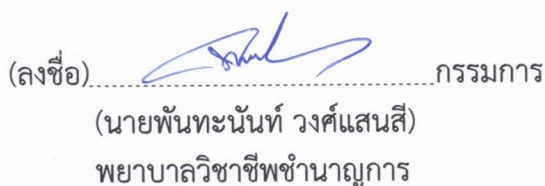 (ลงชื่อ)..............................กรรมการ
(นายพันทะนันท์ วงศ์แสนสี)
พยาบาลวิชาชีพชำนาญการ